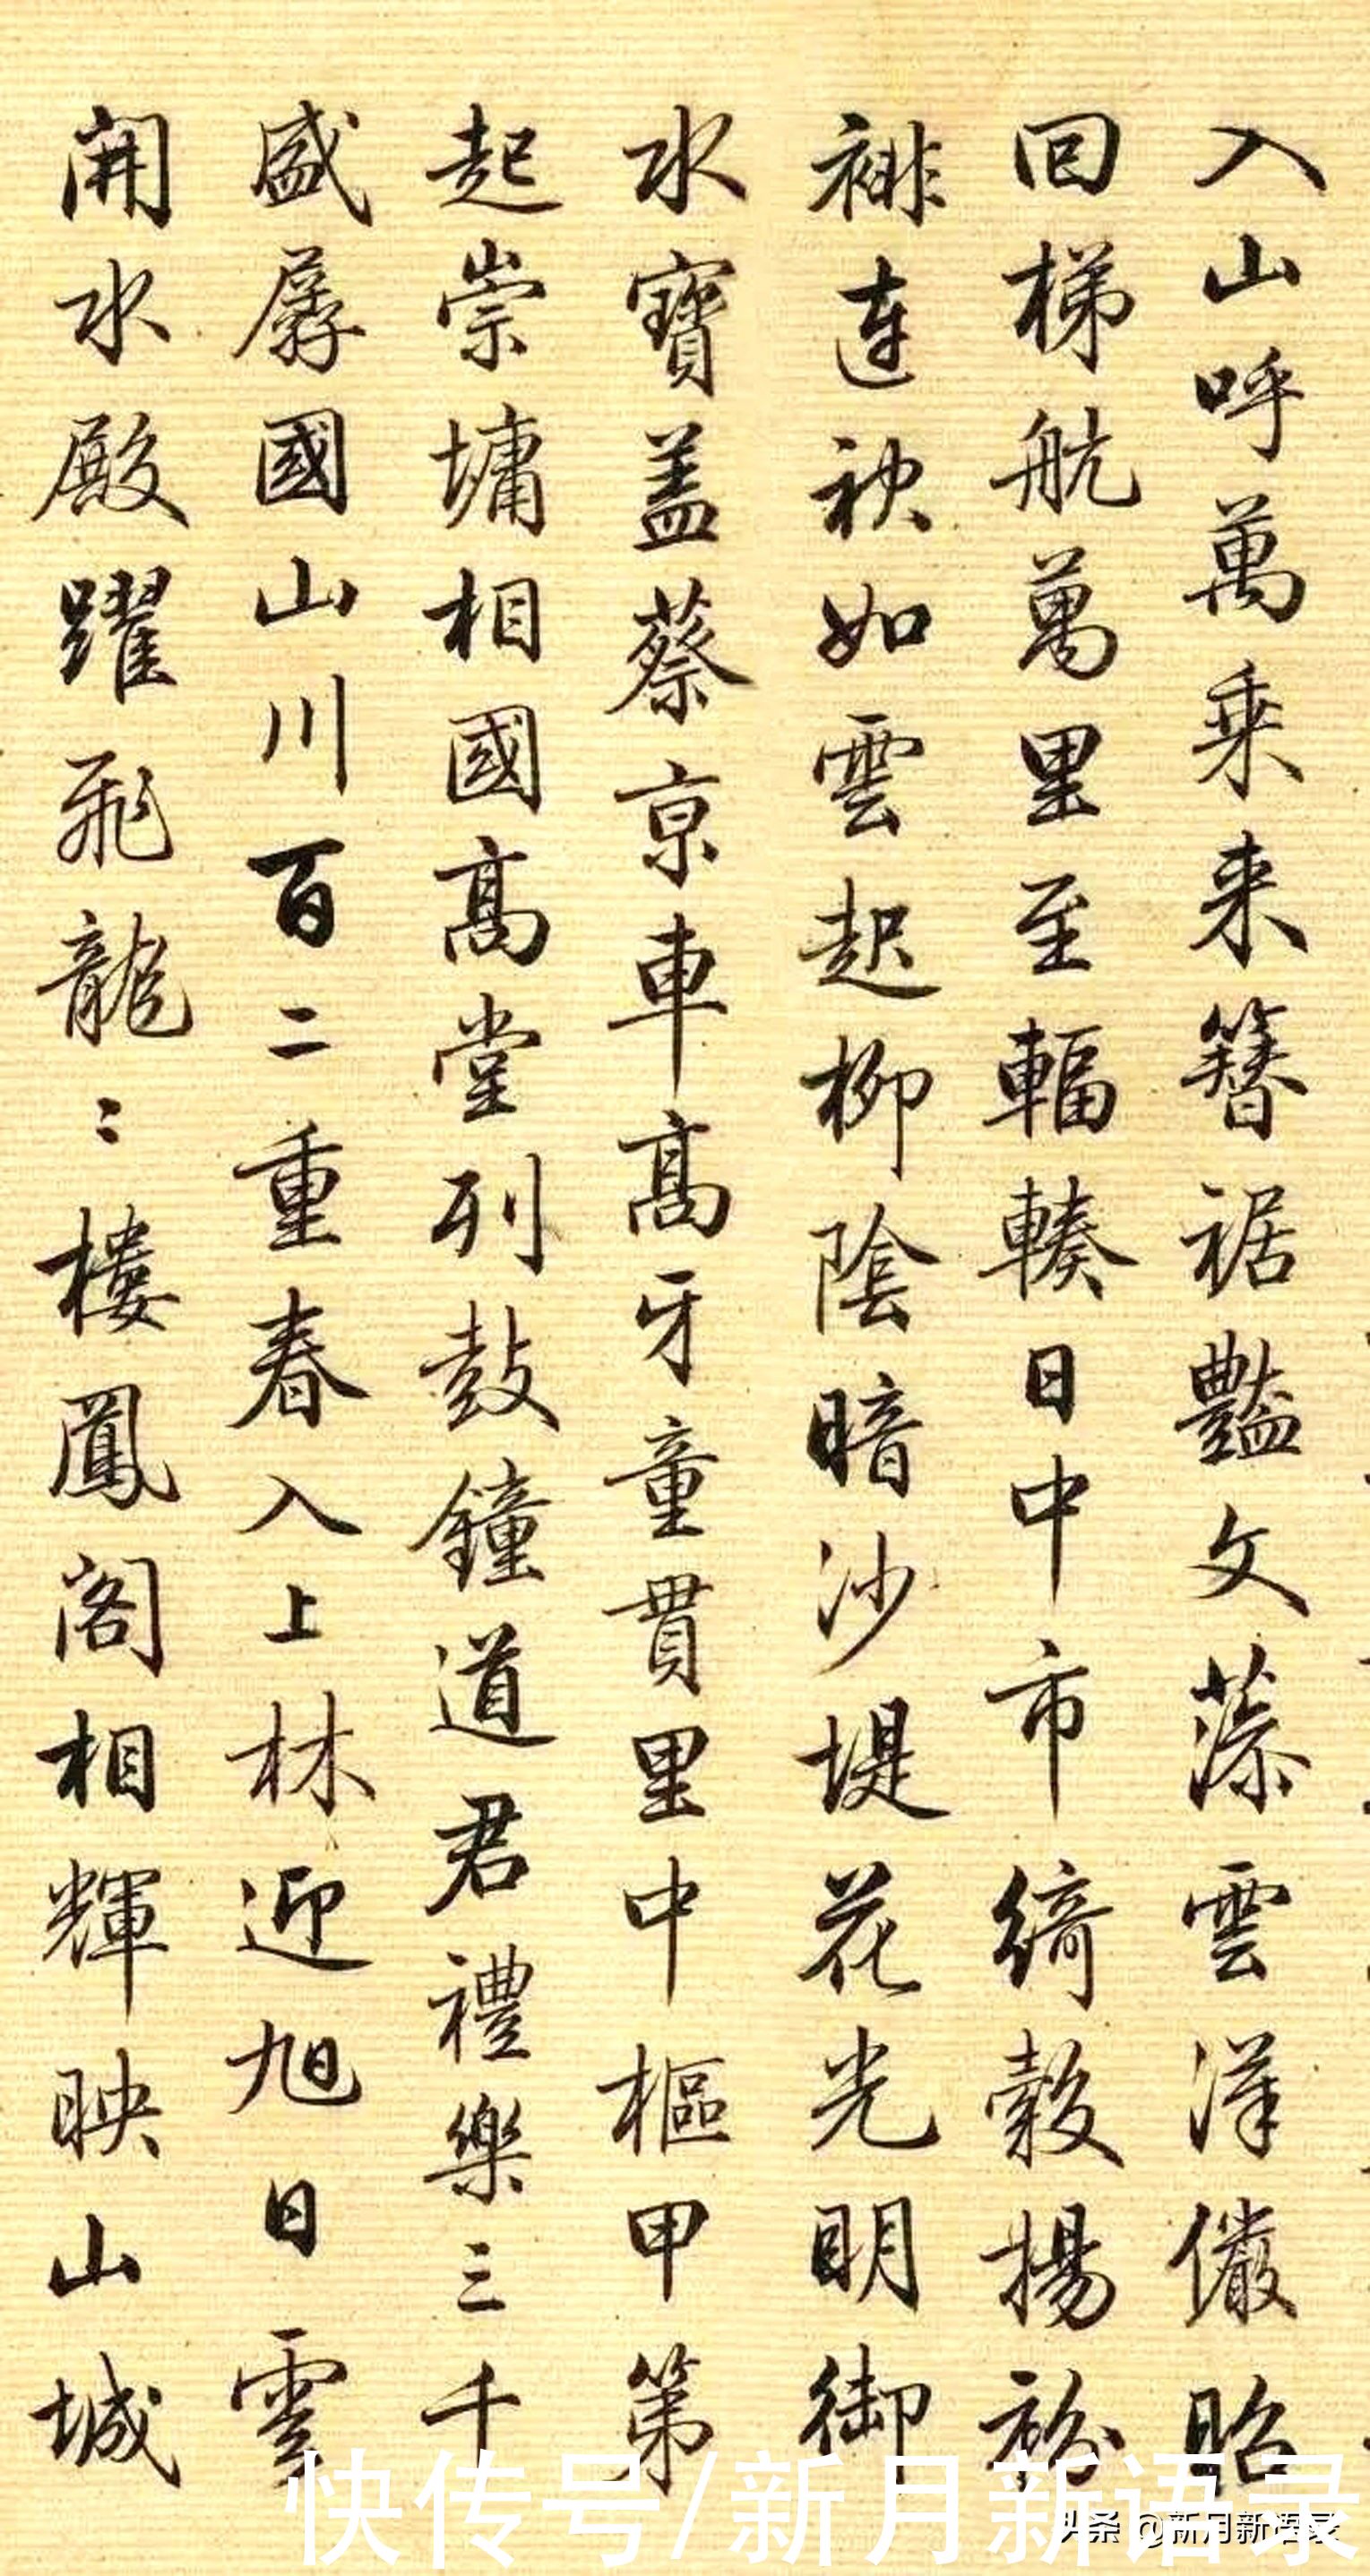 入山呼萬乗来簪裾豔文藻雲漢儼昭
回梯航萬里至輻輳日中市綺縠揚紛
裶連袂如雲起柳陰暗沙堤花光明御
水寶盖蔡京車髙牙童貫里中樞甲第
起崇墉相國髙堂列鼓鐘道君禮樂三千
盛孱國山川百二重春入上林迎旭日雲
開水殿躍飛龍〻樓鳳閣相輝映山城
快传号/新月新语录
头条 @新月新语录